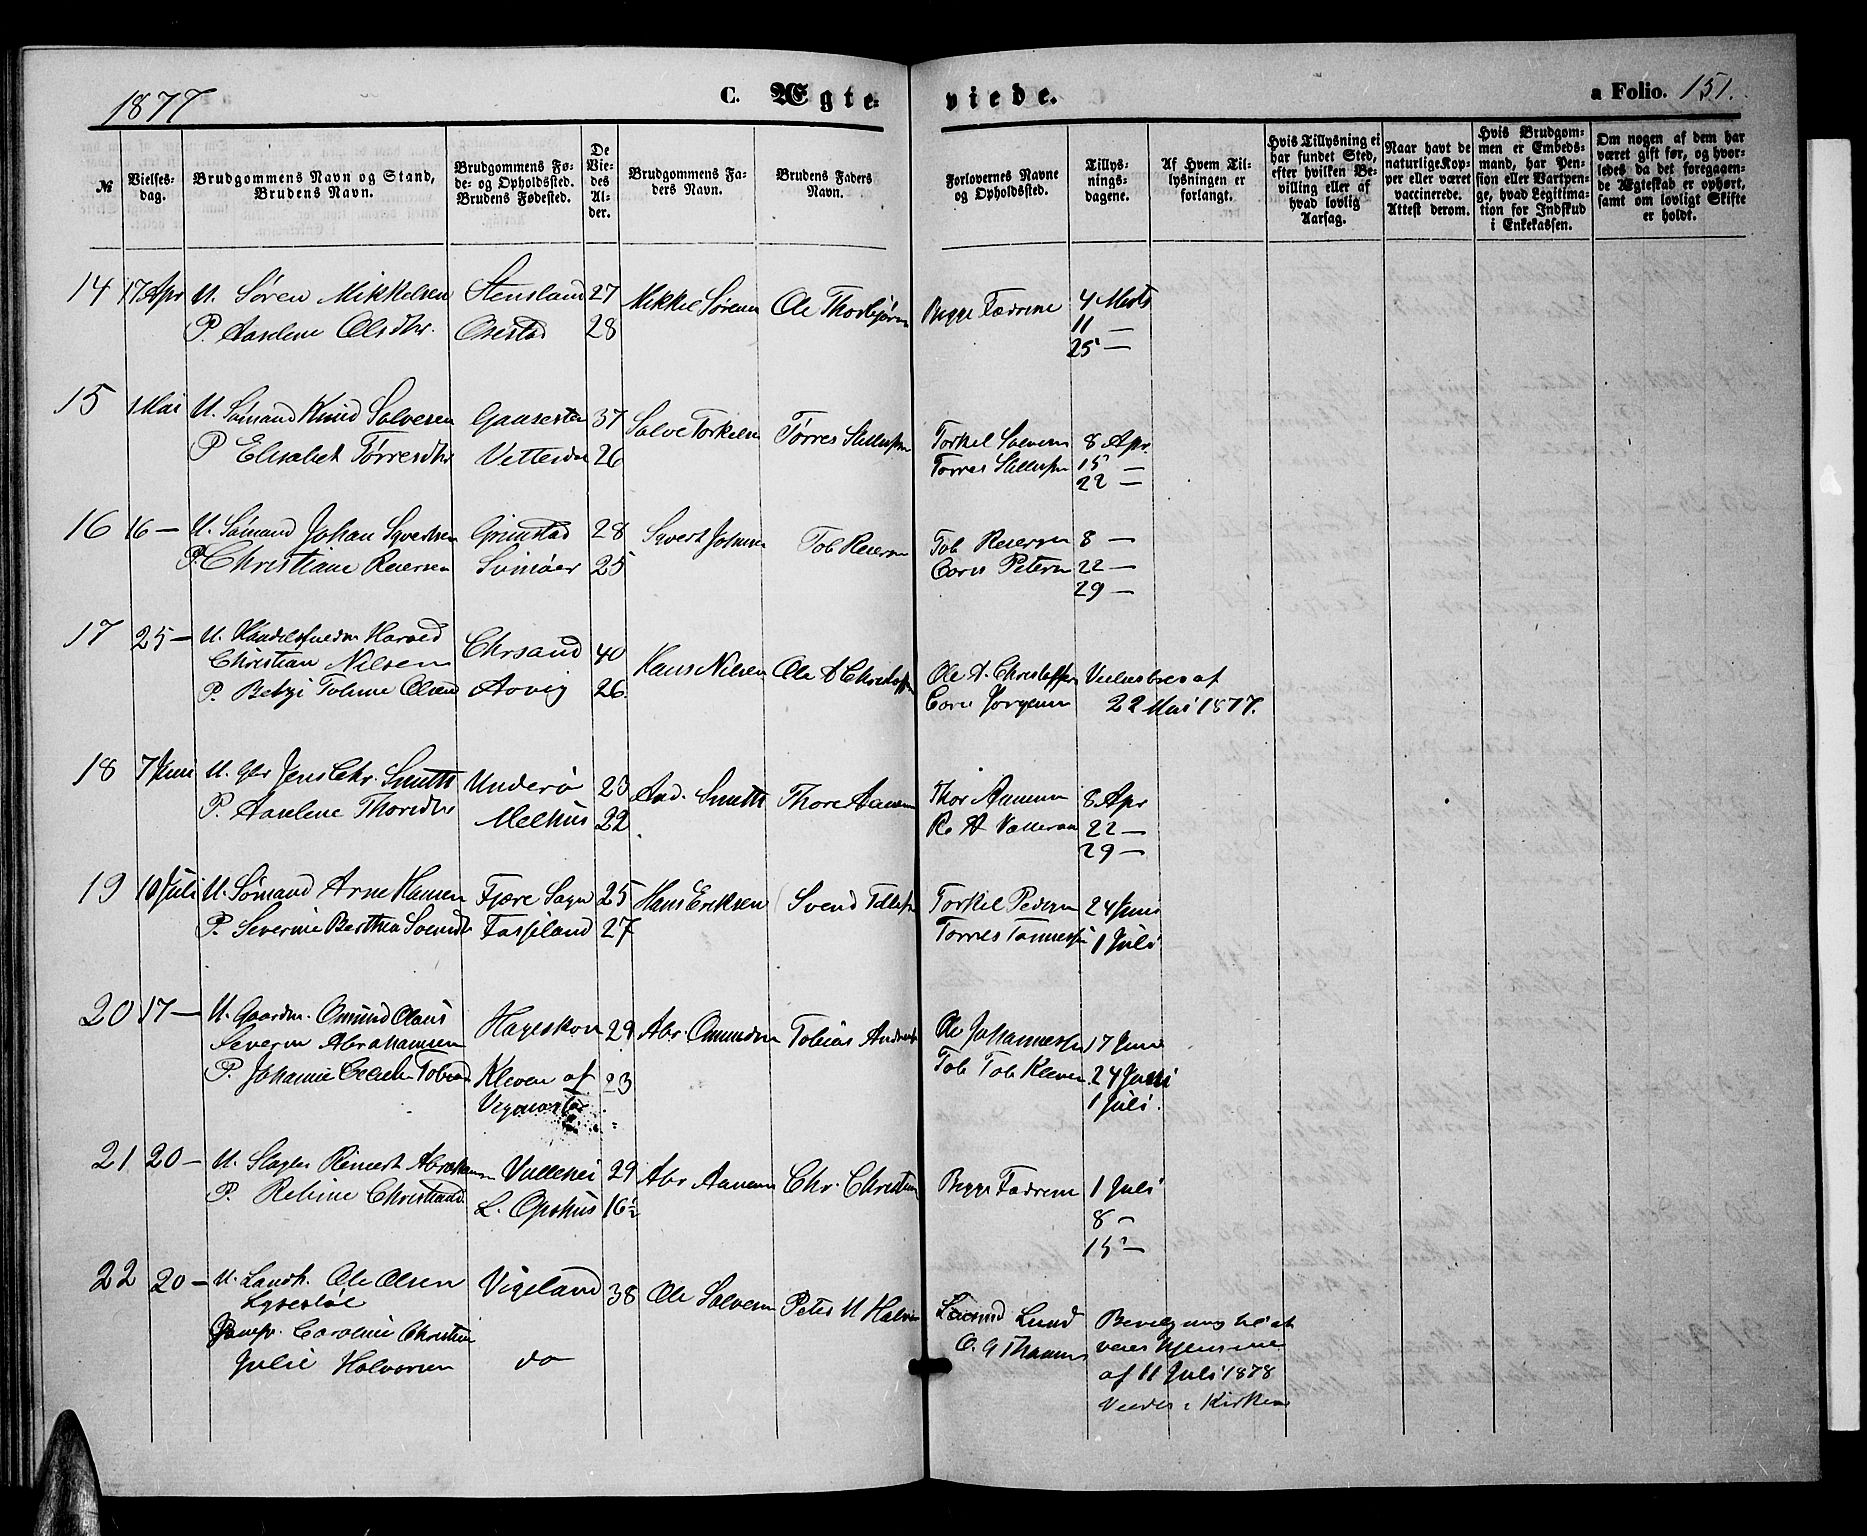 1877
C. Ægteviede.
a Folio. 151.
№
Vielsesdag.
Brudgommens Navn og Stand, Brudens Navn.
Brudgommens Føde- og Opholdssted. Brudens Fødested.
De Viedes Alder.
Brudgommens Faders Navn.
Brudens Faders Navn.
Forlovernes Navne og Opholdssted.
Tillysningsdagene.
Af Hvem Tillysningen er forlangt.
Hvis Tillysning ei har fundet Sted, efter hvilken Bevilling eller af hvad lovlig Aarsag.
Naar havt de naturlige Kopper eller været vaccinerede. Attest derom.
Hvis Brudgommen er Embedsmand, har Pension eller Vartpenge, hvad Legitimation for Indskud i Enkekassen.
Om nogen af dem har været gift før, og hvorledes da det foregagende Ægteskab er ophørt, samt om lovligt Skifte er holdt.
14 17 Apr U. Søren Mikkelsen Stensland 27 Mikkel Sørensen Ole Thorbjørnsen Begge Fædrene 4 Marts
P. Aaselene Olsdtr. Osestad 28 11 —
25 —
15 1 Mai U. Sømand Knud Salvesen Gaaseston 37 Salve Torkelsen Tørres Stillufsen Torkel Salvesen 8 Apr.
P Elisabet Tørresdtr Vetterdal 26 Torres Stillufsen 15 —
22 —
16 16 — U. Sømand Johan Syvertsen Grimstad 28 Syvert Johnsen Tob Reiersen Tob Reiersen 8 —
P. Christiane Reiersen Svinøer 25 Corn Petersen 22 —
29 —
17 25 — U. Handelsfuldm Harald
Christian Nilsen Chrsand 40 Hans Nilsen Ole A Christoffersen Ole A. Christoffersen Vielsesbrev af
P. Betzi Toline Olsen Aavig 26. Corn Jørgensen 22 Mai 1877.
18 7 Juni U. Gbr Jens Chr. Smith Underø 23 And. Smith Thore Aanensen Thor Aanensen 8 Apr
P. Aaselene Thoresdtr Melhus 22 Ro A Valleraa 22 —
29 —
19 10 Juli U. Sømand Arne Hansen Fjære Sogn 25 Hans Eriksen Svend Tellefsen Torkel Pedersen 24 Juni
P. Severine Berthea Svendsdtr Fasseland 27 Torres Tønnessen 1 Juli
20 17 — U. Gaardm. Omund Olaus
Severin Abrahamsen Hageskon 29 Abr. Omundsen Tobias Andersen Ole Johannessen 17 Juni
P. Johanne Tobiasd Kleven af 23 Tob Tob Kleven 24 Juni
1 Juli.
21 20 — U. Slagter Reinert Abrahamsen Vallesvei 29 Abr Aanensen Chr. Christensen Begge Fædrene 1 Juli
P. Rebine Christiansd L. Opshus 16½ 8 —
15 —
22 20 — U. Landh. Ole Olsen Vigeland 38 Ole Salvesen Peter U Halvorsen
Lysestøl Lund Bevilgning til at
Jomfr. Caroline Christine vies hjemme
Julie Halvorsen do af 11 Juli 1878
Viedes i Kirken